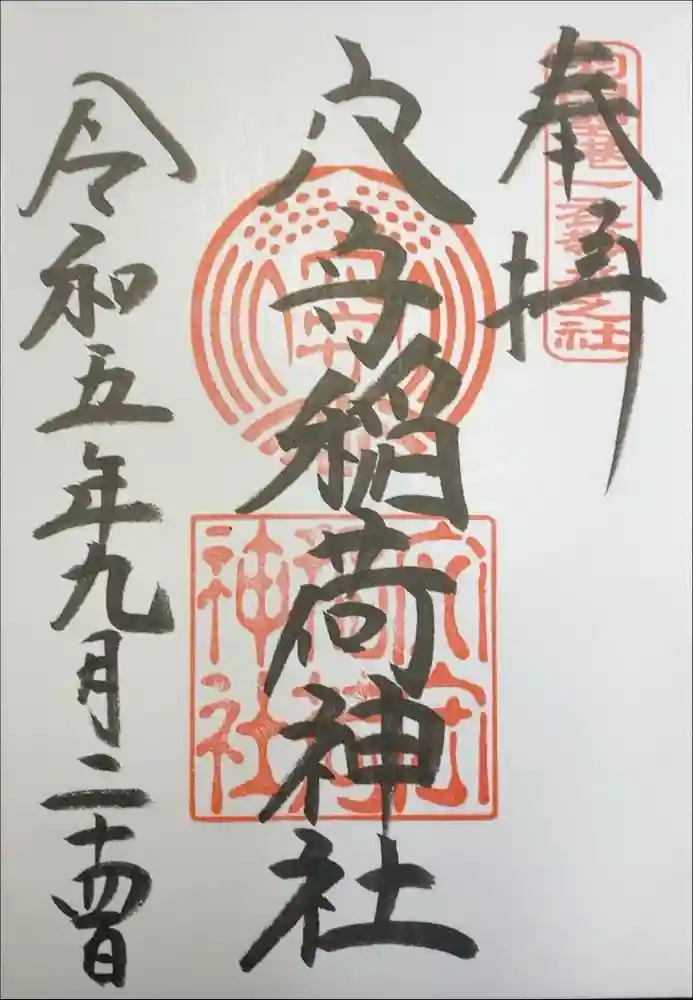 奉拝
穴守稲荷神社
令和五年九月二十四日
穴守稲荷神社